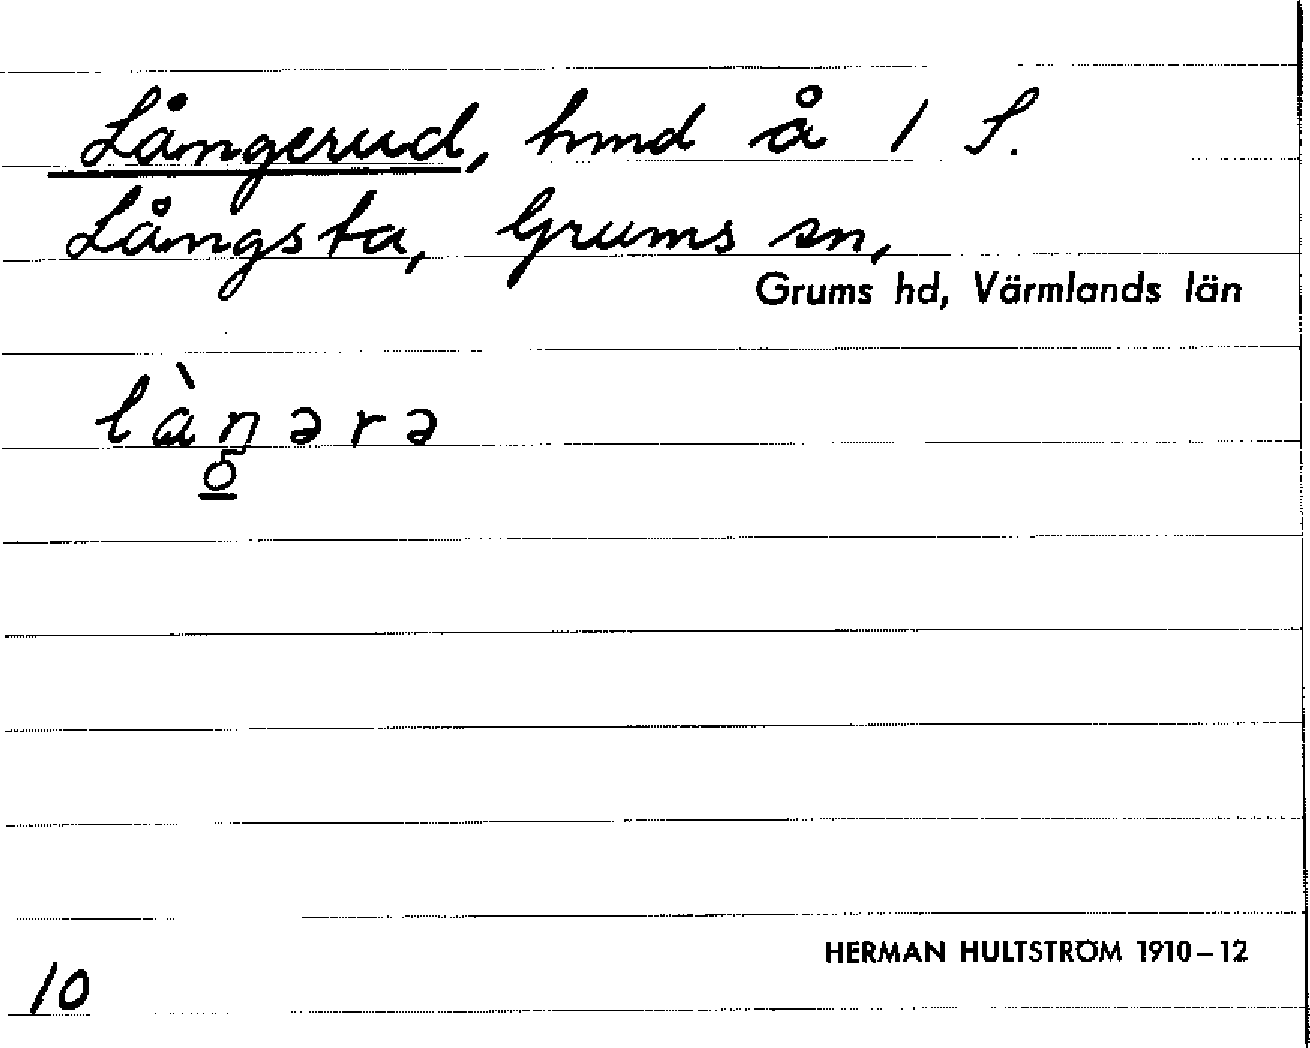 Långerud, hmd å 1 S.
Långsta, Grums sn,
Grums hd, Värmlands län
là̀ŋərə
o
HERMAN HULTSTRÖM 1910–12
10